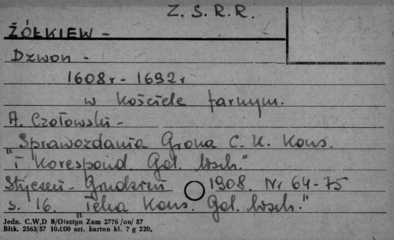 Z. S. R. R.
ŻÓŁKIEW -
Dzwon -
1608r - 1692r
w kościele farnym.
A. Czołowski -
"Sprawozdania Grona C. K. Kons.
i Korespond Gal. wsch."
Styczeń - Grudzień 1908. Nr 64-75
s. 16. Teka Kons. Gal. wsch."
Jedn. C.W.D B/Olsztyn Zam 2776/on/57
Błtk. 2563/57 10.000 szt. karton kl. 7 g 220,